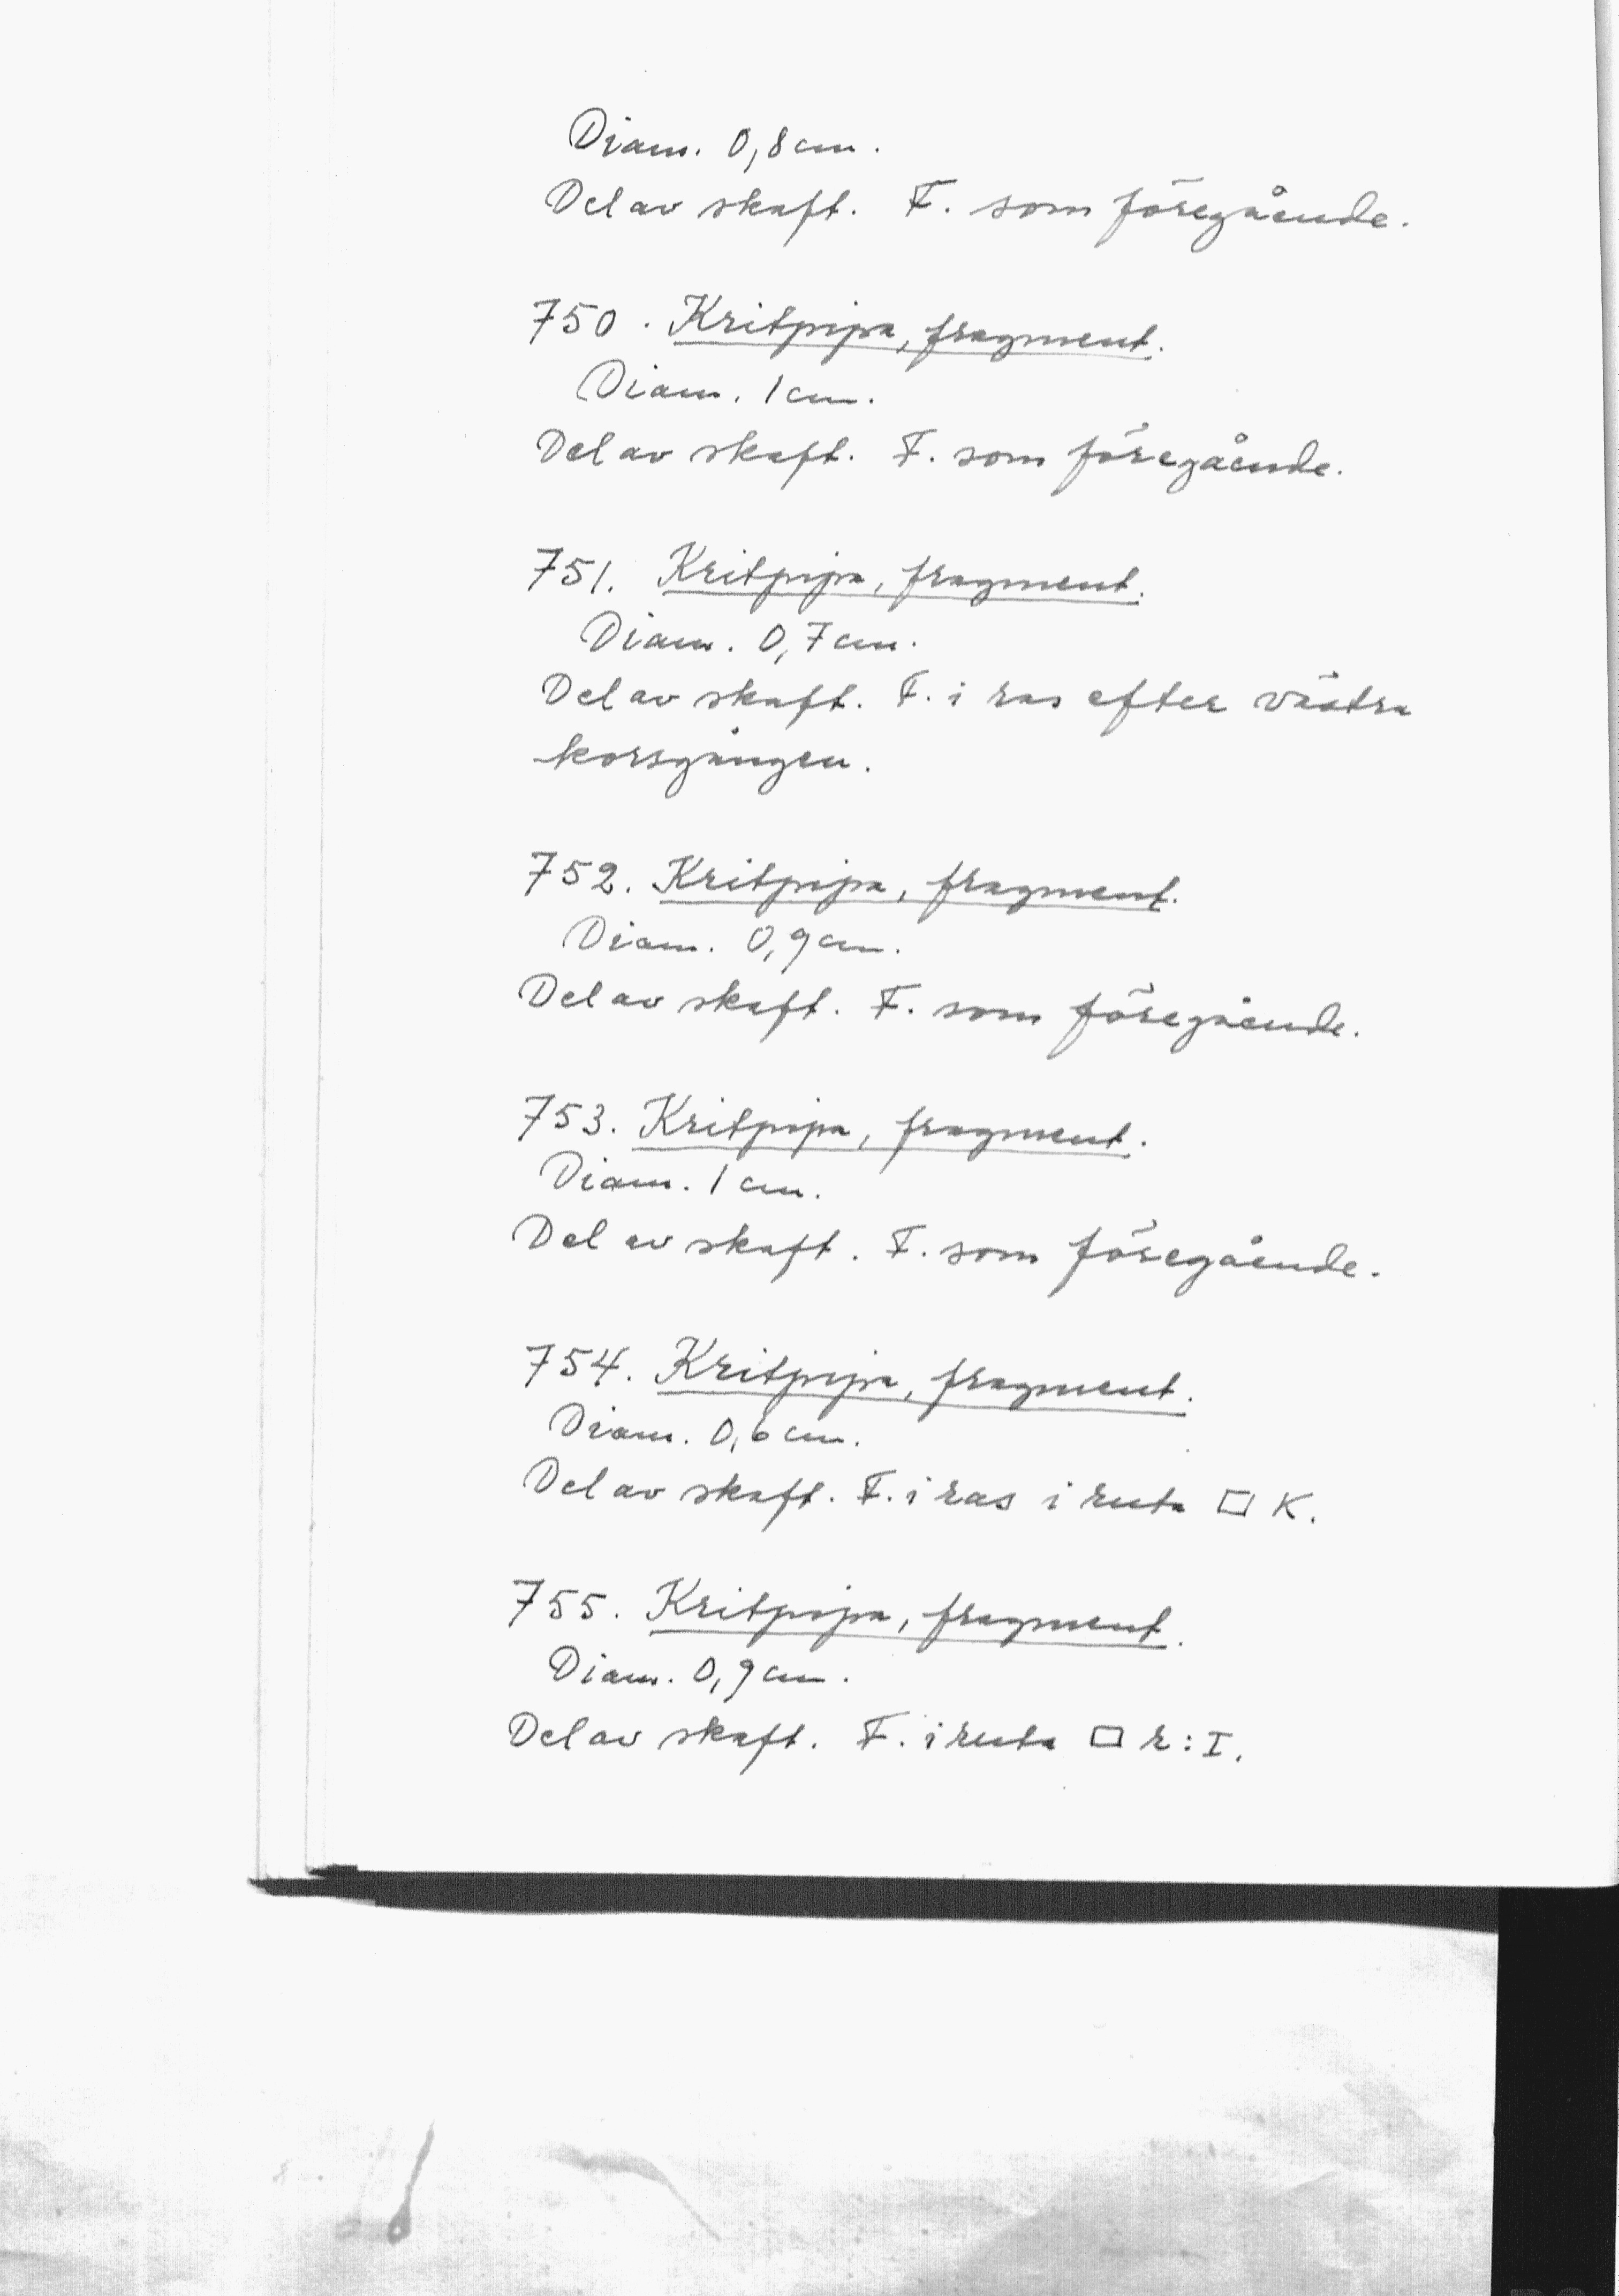 Diam. 0,8 cm.
Del av skaft. F. som föregående.
750. Kritpipa, fragment.
Diam. 1 cm.
Del av skaft. F. som föregående.
751. Kritpipa, fragment.
Diam. 0,7 cm.
Del av skaft. F. i ras efter västra
korsgången.
752. Kritpipa, fragment.
Diam. 0,9 cm.
Del av skaft. F. som föregående.
753. Kritpipa, fragment.
Diam. 1 cm.
Del av skaft. F. som föregående.
754. Kritpipa, fragment.
Diam. 0,6 cm.
Del av skaft. F. i ras i ruta □ K.
755. Kritpipa, fragment.
Diam. 0,9 cm.
Del av skaft. F. i ruta □ r: I.